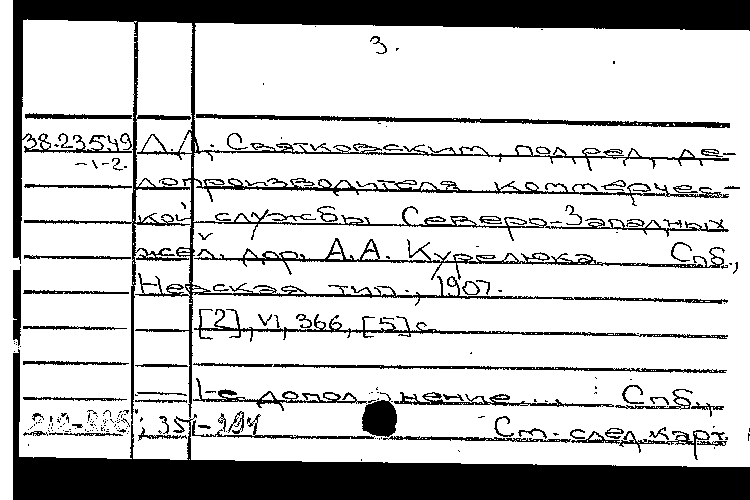 3.
38.23549 Л.Л. Святковским, под ред. де-
-1-2.
лопроизводителя коммерчес-
кой службы Северо-Западных
жел. дор. А.А. Курелюка Спб.,
Невская тип., 1907.
[2], VI, 366, [5] с
— 1-е дополнение... Спб.,
Ст. след. карт